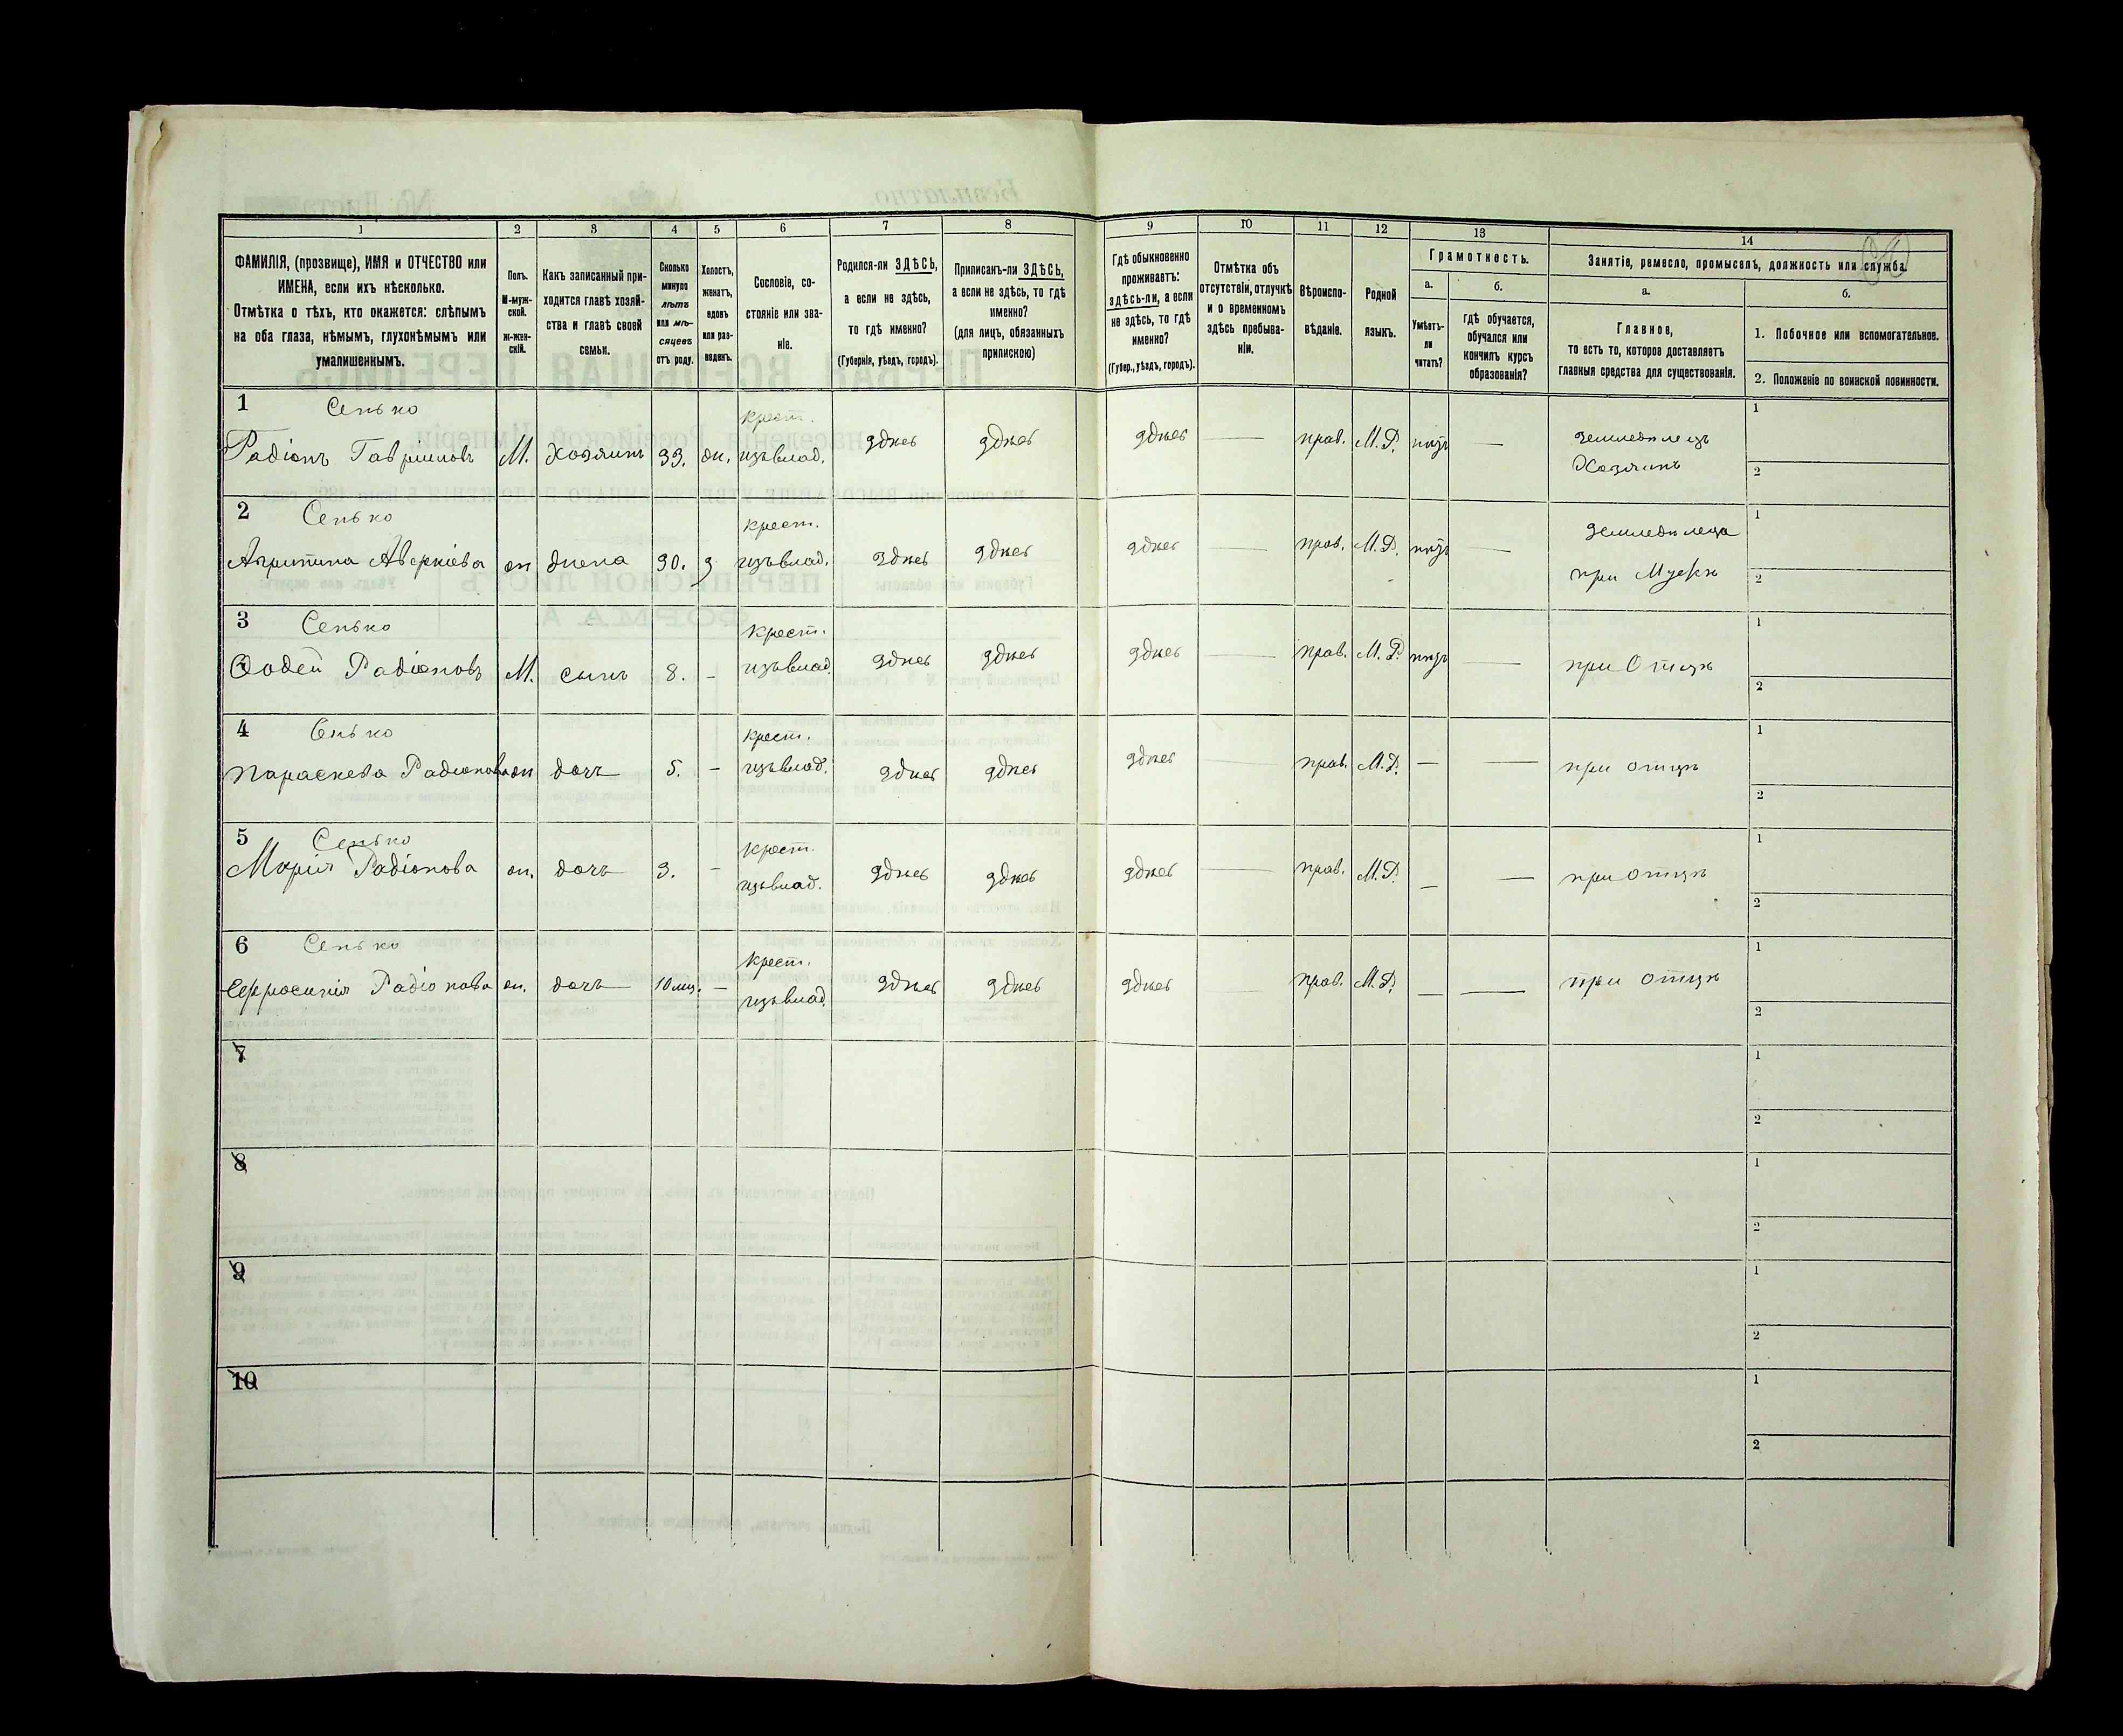 1 2 3 4 5 6 7 8 9 10 11 12 13 14
ФАМИЛІЯ, (прозвище), ИМЯ и ОТЧЕСТВО или
ИМЕНА, если ихъ нѣсколько.
Отмѣтка о тѣхъ, кто окажется: слѣпымъ
на оба глаза, нѣмымъ, глухонѣмымъ или
умалишеннымъ.
Полъ.
М-муж-
ской.
ж-жен-
скій.
Какъ записанный при-
ходится главѣ хозяй-
ства и главѣ своей
семьи.
Сколько
минуло
лѣтъ
или мѣ-
сяцевъ
отъ роду.
Холостъ,
женатъ,
вдовъ
или раз-
веденъ.
Сословіе, со-
стояніе или зва-
ніе.
Родился-ли ЗДѢСЬ,
а если не здѣсь,
то гдѣ именно?
(Губернія, уѣздъ, городъ).
Приписанъ-ли ЗДѢСЬ,
а если не здѣсь, то гдѣ
именно?
(для лицъ, обязанныхъ
припискою)
Гдѣ обыкновенно
проживаетъ:
здѣсь-ли, а если
не здѣсь, то гдѣ
именно?
(Губер., уѣздъ, городъ).
Отмѣтка объ
отсутствіи, отлучкѣ
и о временномъ
здѣсь пребыва-
ніи.
Вѣроиспо-
вѣданіе.
Родной
языкъ.
Грамотность.
а.
Умѣетъ-
ли
читать?
б.
гдѣ обучается,
обучался или
кончилъ курсъ
образованія?
Занятіе, ремесло, промыселъ, должность или служба.
а.
Главное,
то есть то, которое доставляетъ
главныя средства для существованія.
б.
1. Побочное или вспомогательное.
2. Положеніе по воинской повинности.
1 Сенько крест. 1
Радіонъ Гавриловъ М. Хозяинъ 33. ж. изъ влад. здѣсь здѣсь здѣсь — прав. М.Р. нѣтъ — земледѣлецъ
Хозяинъ 2
2 Сенько крест. 1
Агрипина Аверкіева ж жена 30. з изъ влад. здѣсь здѣсь здѣсь — прав. М.Р. нѣтъ — земледѣлеца
при Мужѣ 2
3 Сенько крест. 1
Фодей Радіоновъ М. сынъ 8. - изъ влад. здѣсь здѣсь здѣсь — прав. М.Р. нѣтъ — при Отцѣ
2
4 Сенько крест. 1
Параскева Радіонова ж дочь 5. - изъ влад. здѣсь здѣсь здѣсь — прав. М.Р. — — при отцѣ
2
5 Сенько крест. 1
Марія Радіонова ж. дочь 3. - изъ влад. здѣсь здѣсь здѣсь — прав. М.Р. — — при отцѣ
2
6 Сенько крест. 1
Ефросинія Радіонова ж. дочь 10 мц. — изъ влад. здѣсь здѣсь здѣсь — прав. М.Р. — — при отцѣ
2
7 1
2
8 1
2
9 1
2
10 1
2